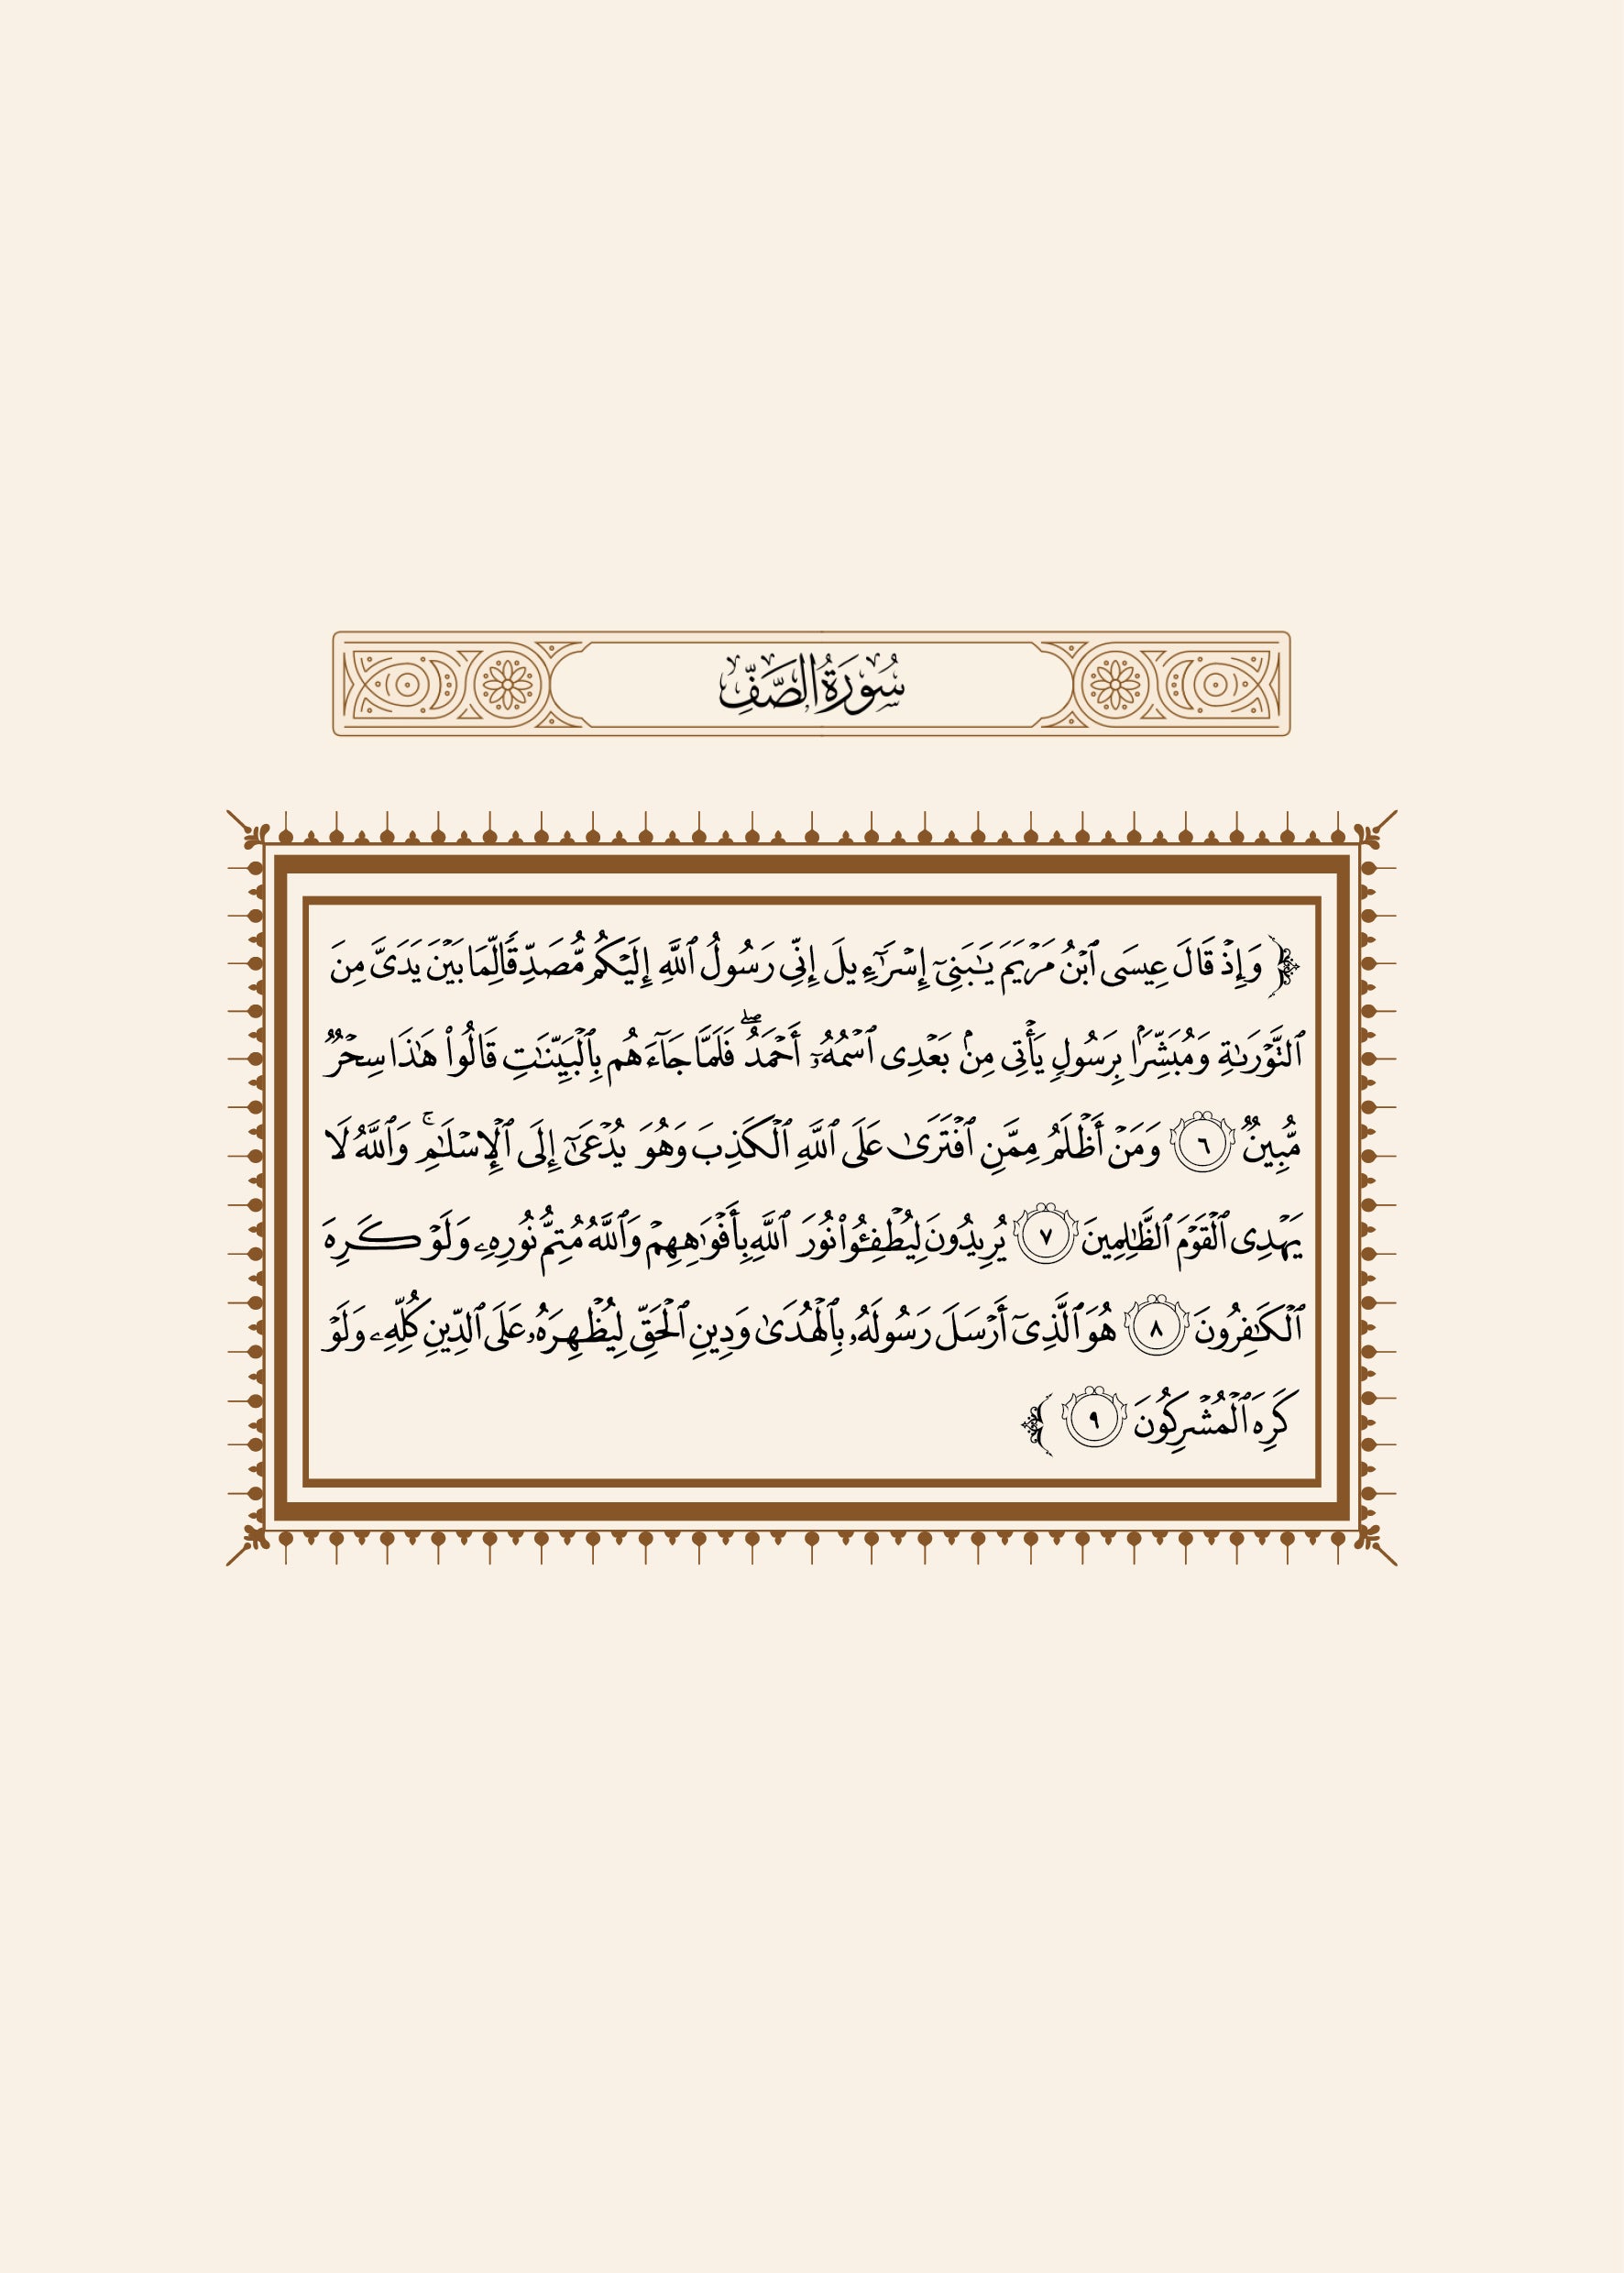 سُورَةُ الصَّفِّ
﴿ وَإِذۡ قَالَ عِيسَى ٱبۡنُ مَرۡيَمَ يَـٰبَنِىٓ إِسۡرَٰٓءِيلَ إِنِّى رَسُولُ ٱللَّهِ إِلَيۡكُم مُّصَدِّقࣰا لِّمَا بَيۡنَ يَدَىَّ مِنَ
ٱلتَّوۡرَىٰةِ وَمُبَشِّرَۢا بِرَسُولࣲ يَأۡتِى مِنۢ بَعۡدِى ٱسۡمُهُۥۤ أَحۡمَدُۖ فَلَمَّا جَاۤءَهُم بِٱلۡبَيِّنَـٰتِ قَالُوا۟ هَـٰذَا سِحۡرࣱ
مُّبِينࣱ ٦ وَمَنۡ أَظۡلَمُ مِمَّنِ ٱفۡتَرَىٰ عَلَى ٱللَّهِ ٱلۡكَذِبَ وَهُوَ يُدۡعَىٰۤ إِلَى ٱلۡإِسۡلَـٰمِۚ وَٱللَّهُ لَا
يَهۡدِى ٱلۡقَوۡمَ ٱلظَّـٰلِمِينَ ٧ يُرِيدُونَ لِيُطۡفِـُٔوا۟ نُورَ ٱللَّهِ بِأَفۡوَٰهِهِمۡ وَٱللَّهُ مُتِمُّ نُورِهِۦ وَلَوۡ كَرِهَ
ٱلۡكَـٰفِرُونَ ٨ هُوَ ٱلَّذِىۤ أَرۡسَلَ رَسُولَهُۥ بِٱلۡهُدَىٰ وَدِينِ ٱلۡحَقِّ لِيُظۡهِرَهُۥ عَلَى ٱلدِّينِ كُلِّهِۦ وَلَوۡ
كَرِهَ ٱلۡمُشۡرِكُونَ ٩ ﴾